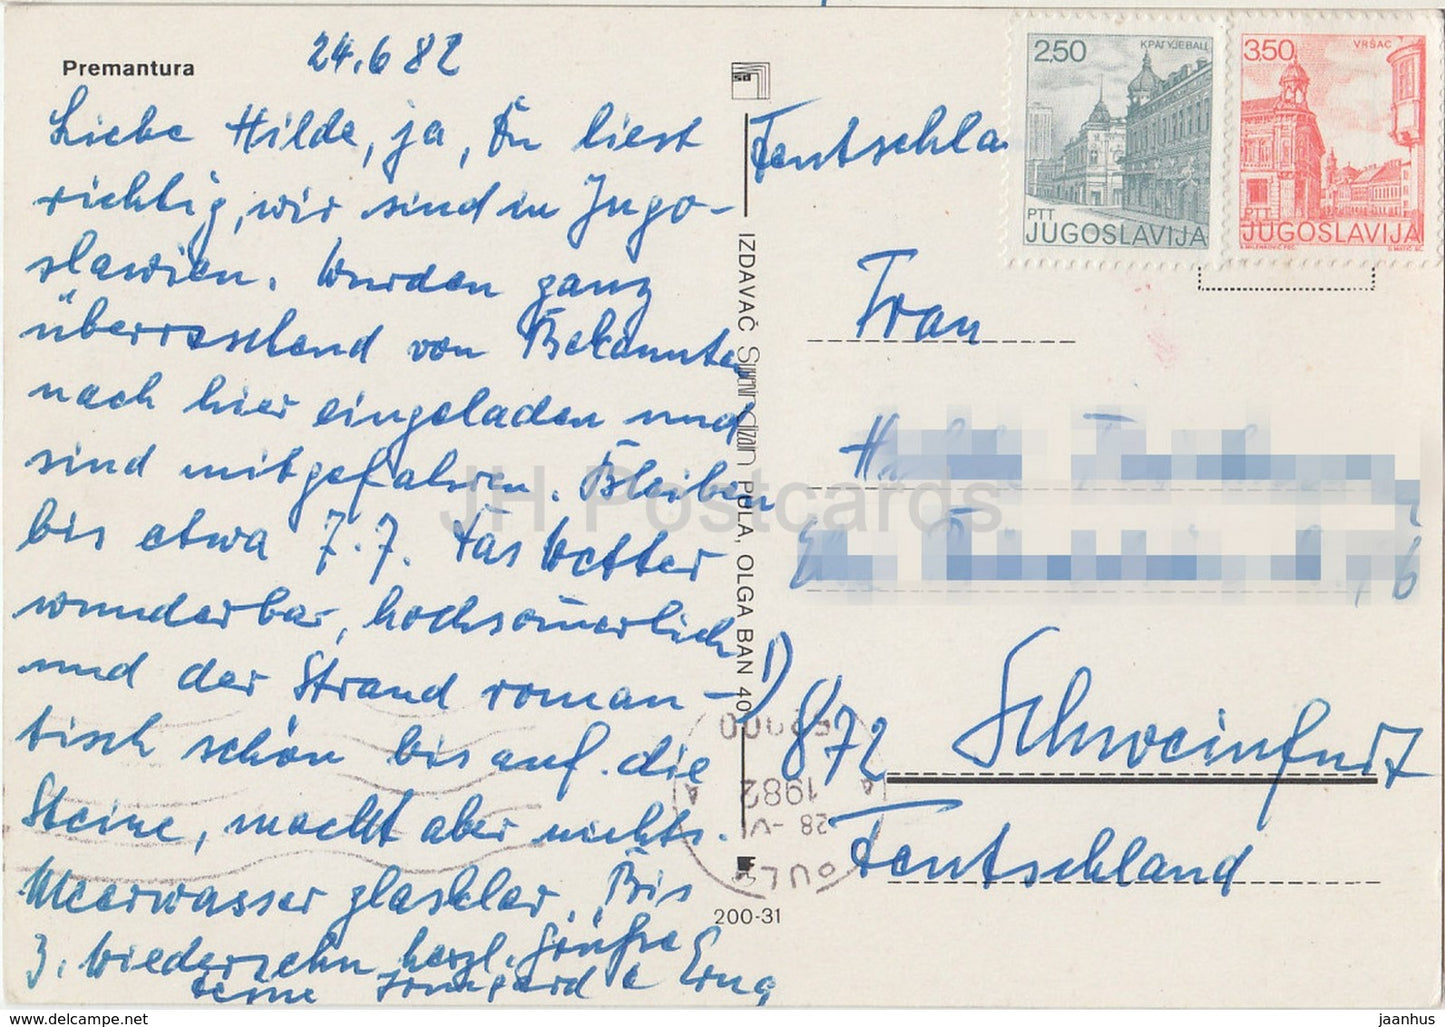 Premantura
24.6 82
Liebe Hilde, ja, Du liest
richtig, wir sind in Jugo-
slawien. Wurden ganz
überraschend von Bekannten
nach hier eingeladen und
sind mitgefahren. Bleiben
bis etwa 7.7. Das Wetter
wunderbar, hochsommerlich
und der Strand roman-
tisch schön bis auf die
Steine, macht aber nichts.
Meerwasser glasklar. Bis
z. Wiedersehn herzl. Grüße
Deine Irmgard & Erna
IZDAVAČ
PULA, OLGA BAN 40
200-31
28-VI
1982
Deutschla
2,50 КРАГУЈЕВАЦ
PTT
JUGOSLAVIJA
3,50 VRŠAC
PTT
JUGOSLAVIJA
Frau
872 Schweinfurt
Deutschland
JH Postcards
www.delcampe.net
jaanhus